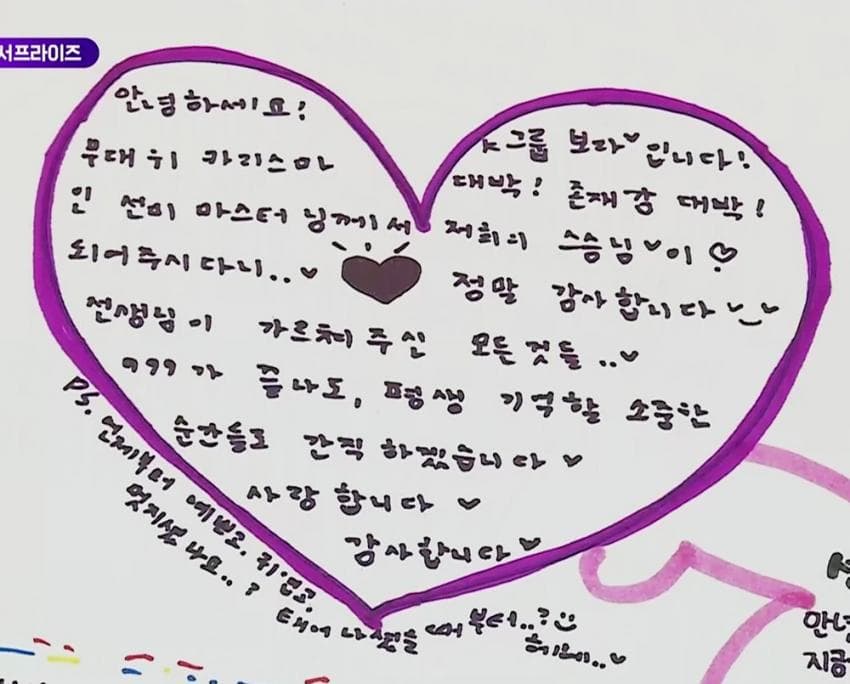 서프라이즈
안녕하세요!
K그룹 보라♥입니다!
무대 위 카리스마
대박! 존재감 대박!
인 선미 마스터 님께서 저희의 스승님♥이
되어주시다니..♥ 정말 감사합니다
선생님이 가르쳐주신 모든것들..♥
999가 끝나도, 평생 기억할 소중한
순간들로 간직 하겠습니다 ♥
사랑합니다 ♥
감사합니다♥
PS. 언제부터 예쁘고, 귀엽고,
멋지셨나요..?
태어나셨을 때부터..?
헤헤..♥
안녕
지금